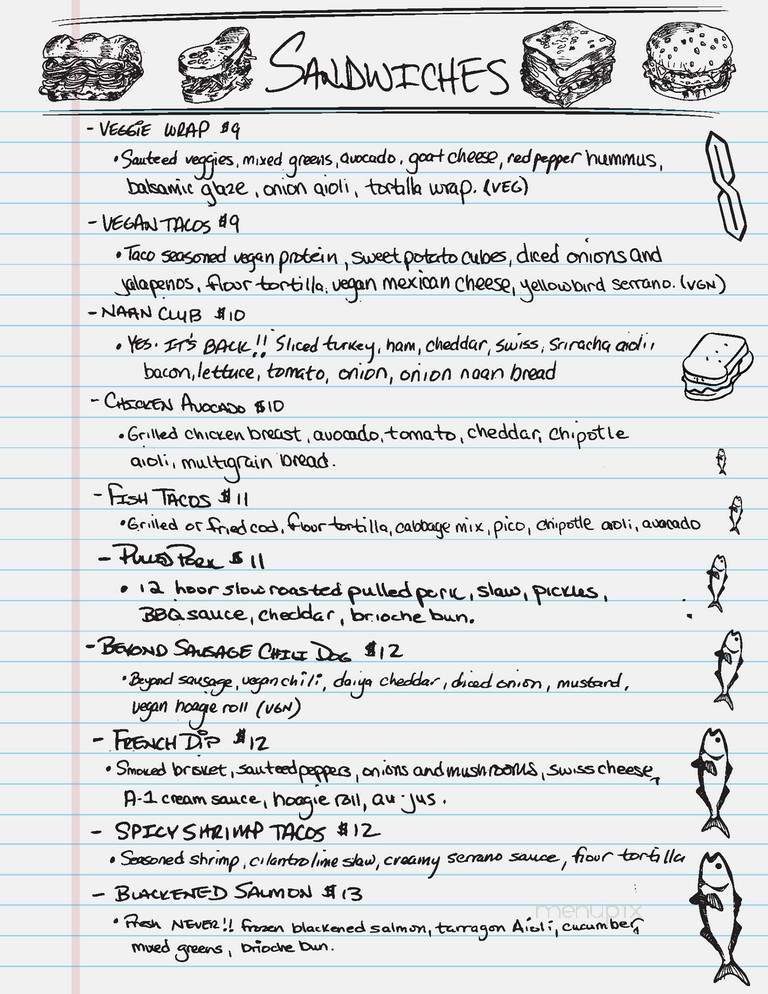 SANDWICHES
- VEGGIE WRAP $9
• Sauteed veggies, mixed greens, avocado, goat cheese, red pepper hummus,
balsamic glaze, onion aioli, tortilla wrap. (VEG)
- VEGAN TACOS $9
• Taco seasoned vegan protein, sweet potato cubes, diced onions and
jalapenos, flour tortilla, vegan mexican cheese, yellowbird serrano. (VGN)
- NAAN CLUB $10
• YES. IT'S BACK!! Sliced turkey, ham, cheddar, swiss, Sriracha aioli,
bacon, lettuce, tomato, onion, onion naan bread
- CHICKEN AVOCADO $10
• Grilled chicken breast, avocado, tomato, cheddar, chipotle
aioli, multigrain bread.
- FISH TACOS $11
• Grilled or fried cod, flour tortilla, cabbage mix, pico, chipotle aioli, avocado
- PULLED PORK $11
• 12 hour slow roasted pulled pork, slaw, pickles,
BBQ sauce, cheddar, brioche bun.
- BEYOND SAUSAGE CHILI DOG $12
• Beyond sausage, vegan chili, daiya cheddar, diced onion, mustard,
vegan hoagie roll (VGN)
- FRENCH DIP $12
• Smoked brisket, sauteed peppers, onions and mushrooms, swiss cheese,
A-1 cream sauce, hoagie roll, au-jus.
- SPICY SHRIMP TACOS $12
• Seasoned shrimp, cilantro lime slaw, creamy serrano sauce, flour tortilla
- BLACKENED SALMON $13
• Fresh NEVER!! frozen blackened salmon, tarragon Aioli, cucumber,
mixed greens, brioche bun.
menupix